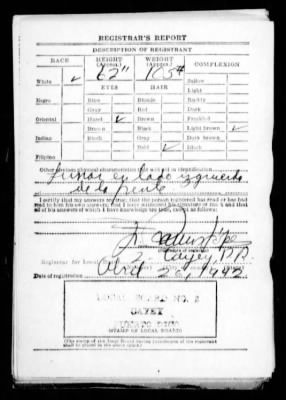 REGISTRAR'S REPORT
DESCRIPTION OF REGISTRANT
RACE
HEIGHT (Approx.)
WEIGHT (Approx.)
COMPLEXION
White ✓
62"
105#
Sallow
Light
EYES
HAIR
Negro
Blue
Blonde
Ruddy
Gray
Red
Dark
Oriental
Hazel ✓
Brown
Freckled
Brown
Black
Light brown ✓
Indian
Black
Gray
Dark brown
Bald
Black
Filipino
Other obvious physical characteristics that will aid in identification
Lunar en lado izquierdo
de la frente
I certify that my answers are true; that the person registered has read or has had
read to him his own answers; that I have witnessed his signature or mark and that
all of his answers of which I have knowledge are true, except as follows:
Registrar for Local Board 2 Cayey, P.R.
Date of registration
1942
LOCAL BOARD NO. 2
CAYEY
PUERTO RICO
STAMP OF LOCAL BOARD
(The stamp of the Local Board having jurisdiction of the registrant
shall be placed in the above space.)